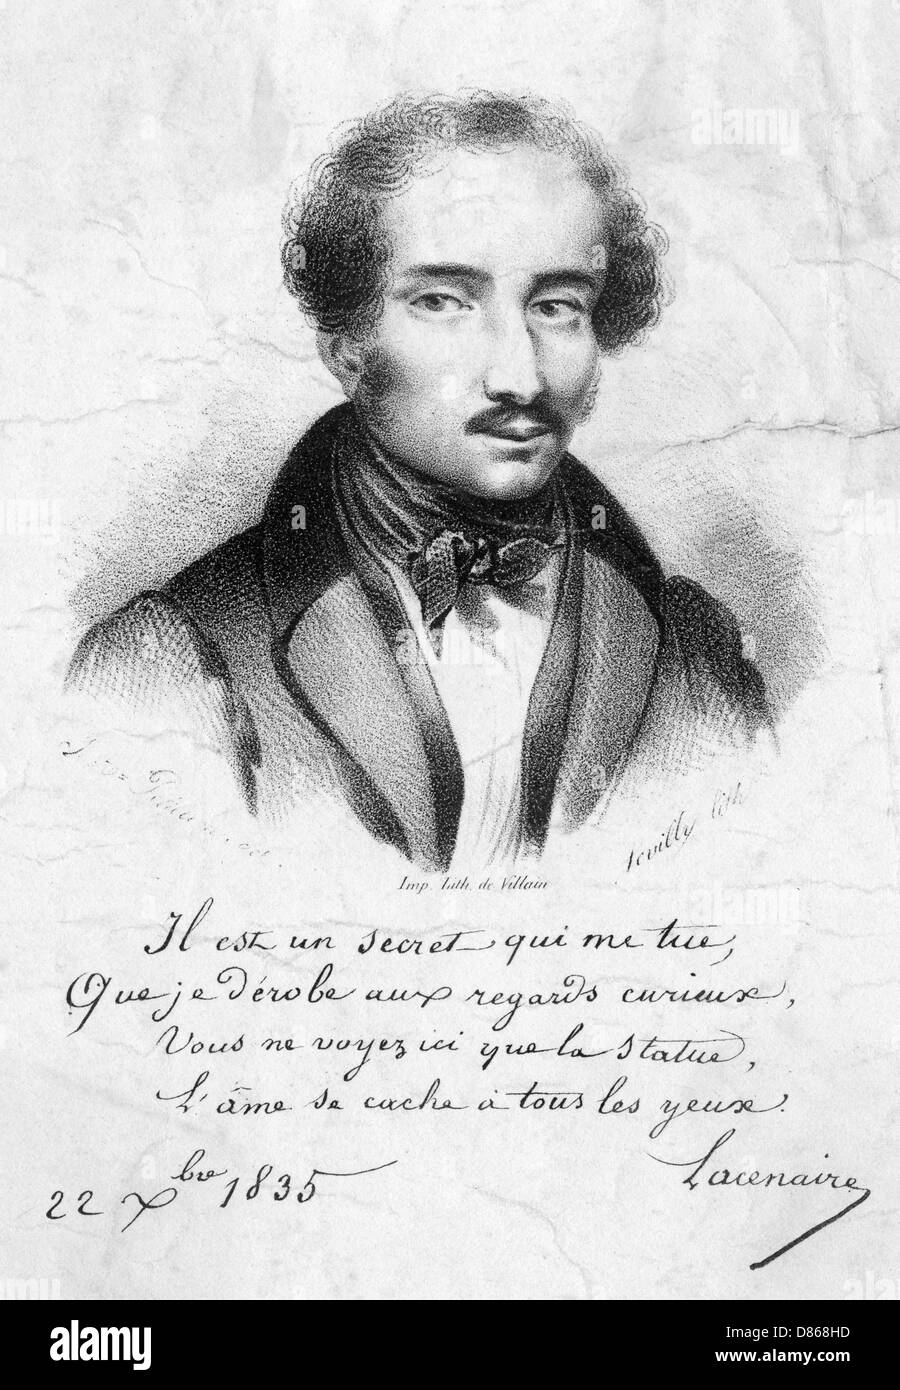 Imp. Lith. de Villain
lith
Il est un secret qui me tue,
Que je dérobe aux regards curieux,
Vous ne voyez ici que la statue,
L'âme se cache à tous les yeux.
Lacenaire
22 Xbre 1835
alamy
Image ID: D868HD
www.alamy.com